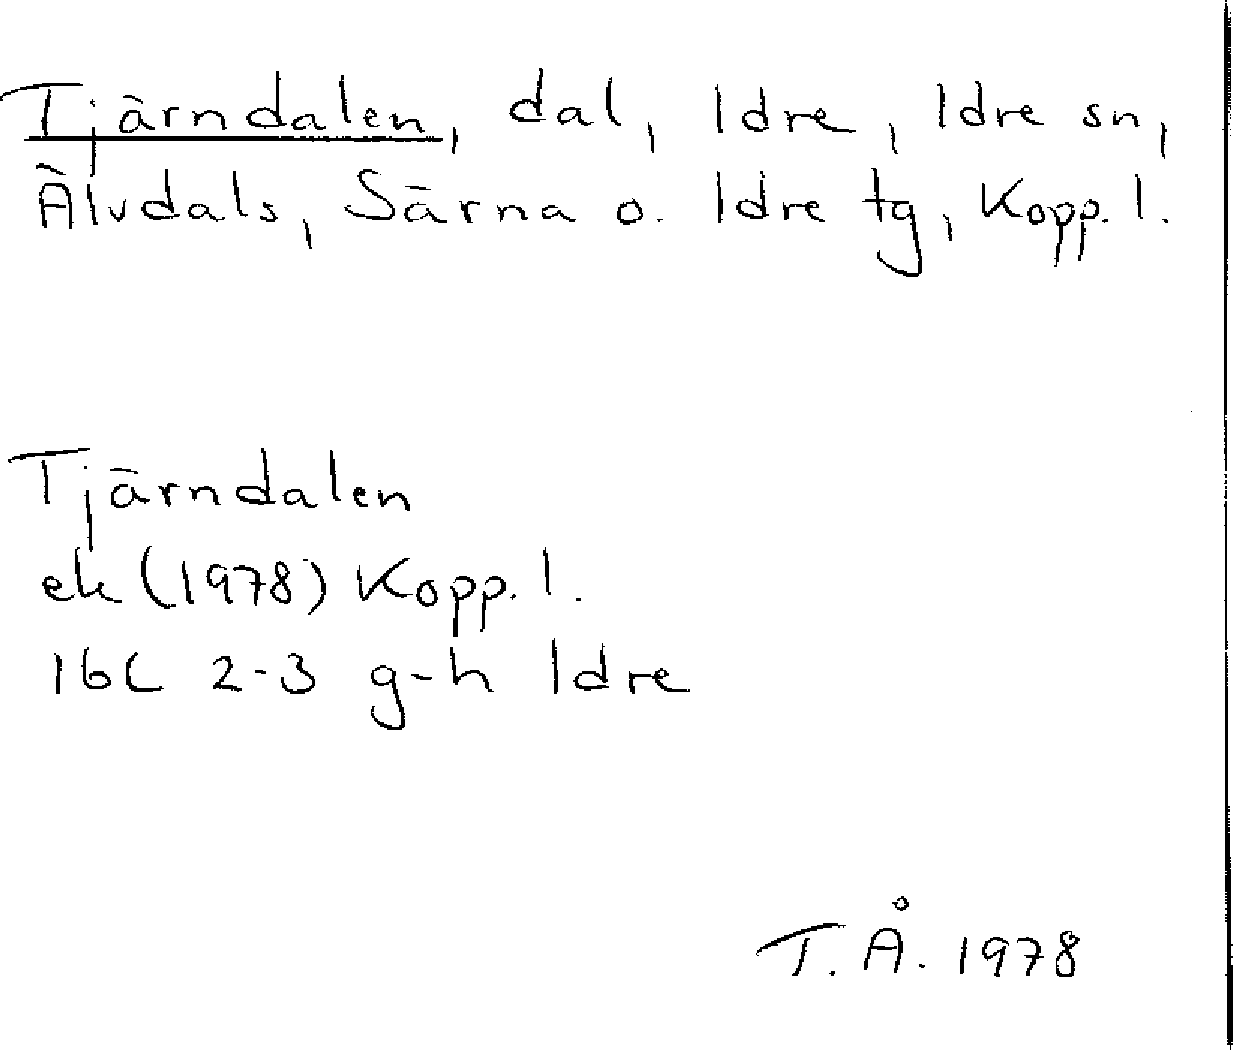 Tjärndalen, dal, Idre, Idre sn,
Älvdals, Särna o. Idre tg, Kopp. l.
Tjärndalen
ek (1978) Kopp. l.
16C 2-3 g-h Idre
T. Å. 1978